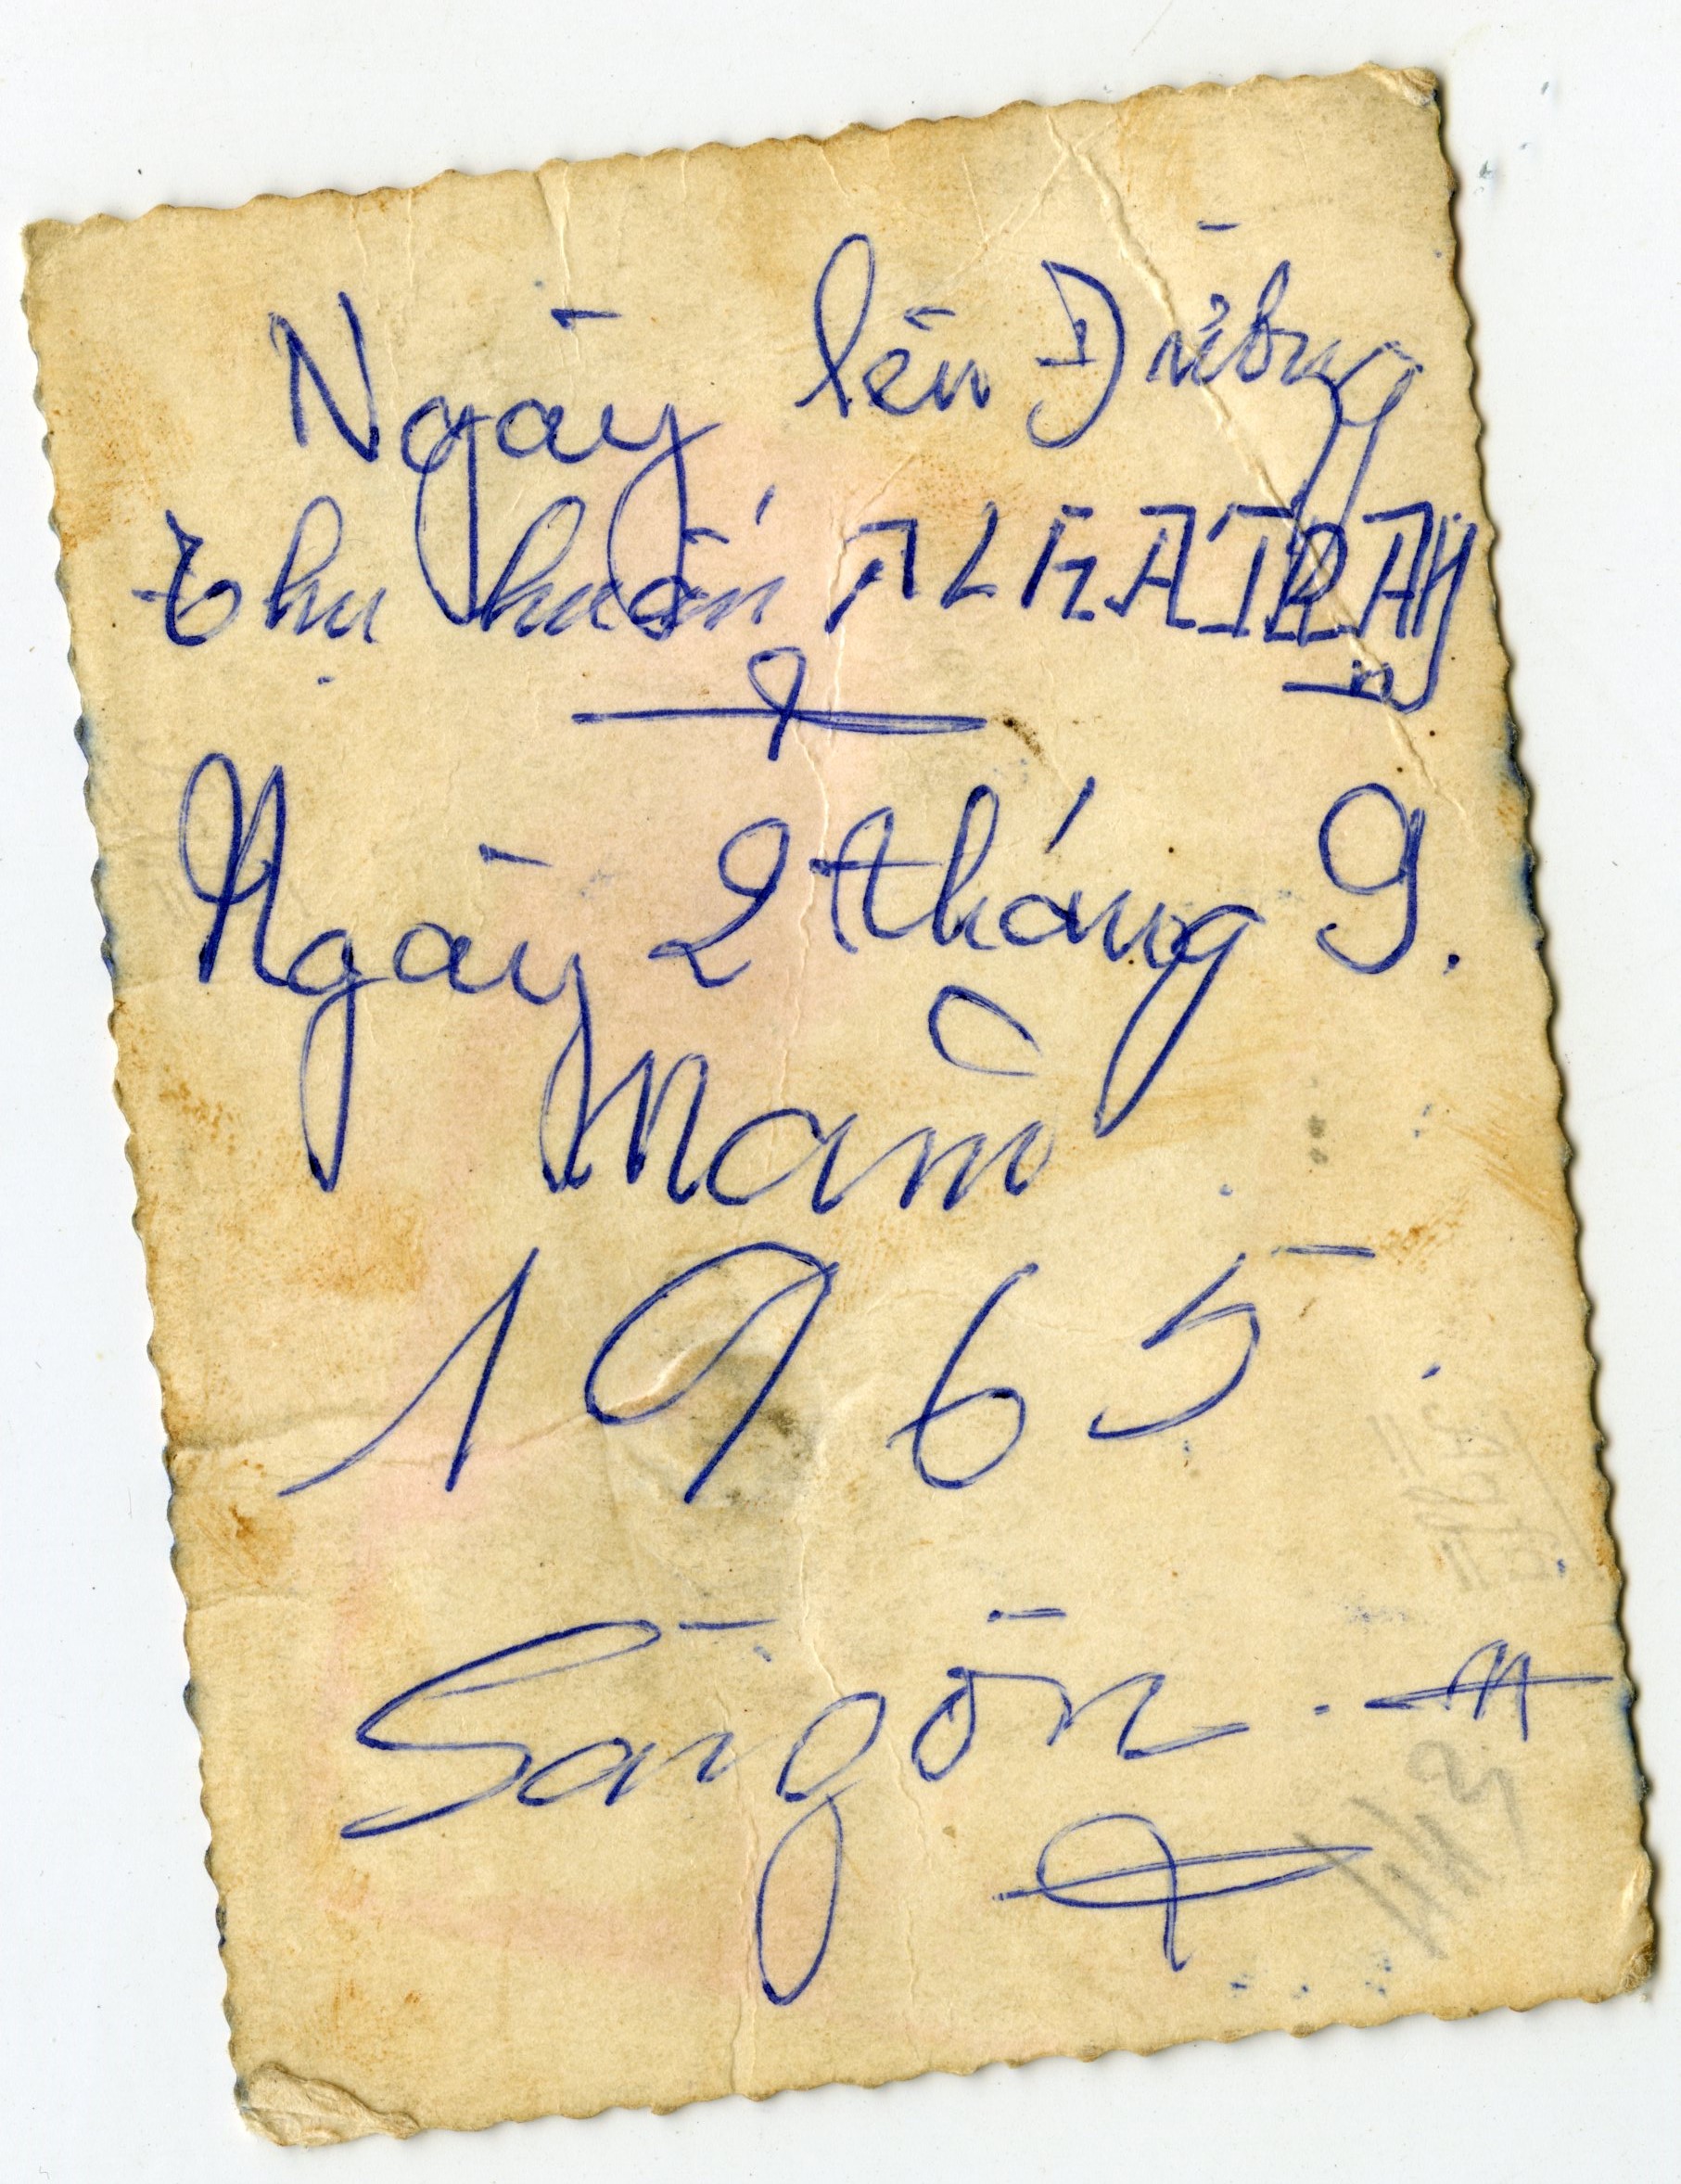 Ngày lên Đường
thụ huấn
Ngày 2 tháng 9.
Năm
1965
Sàigòn.